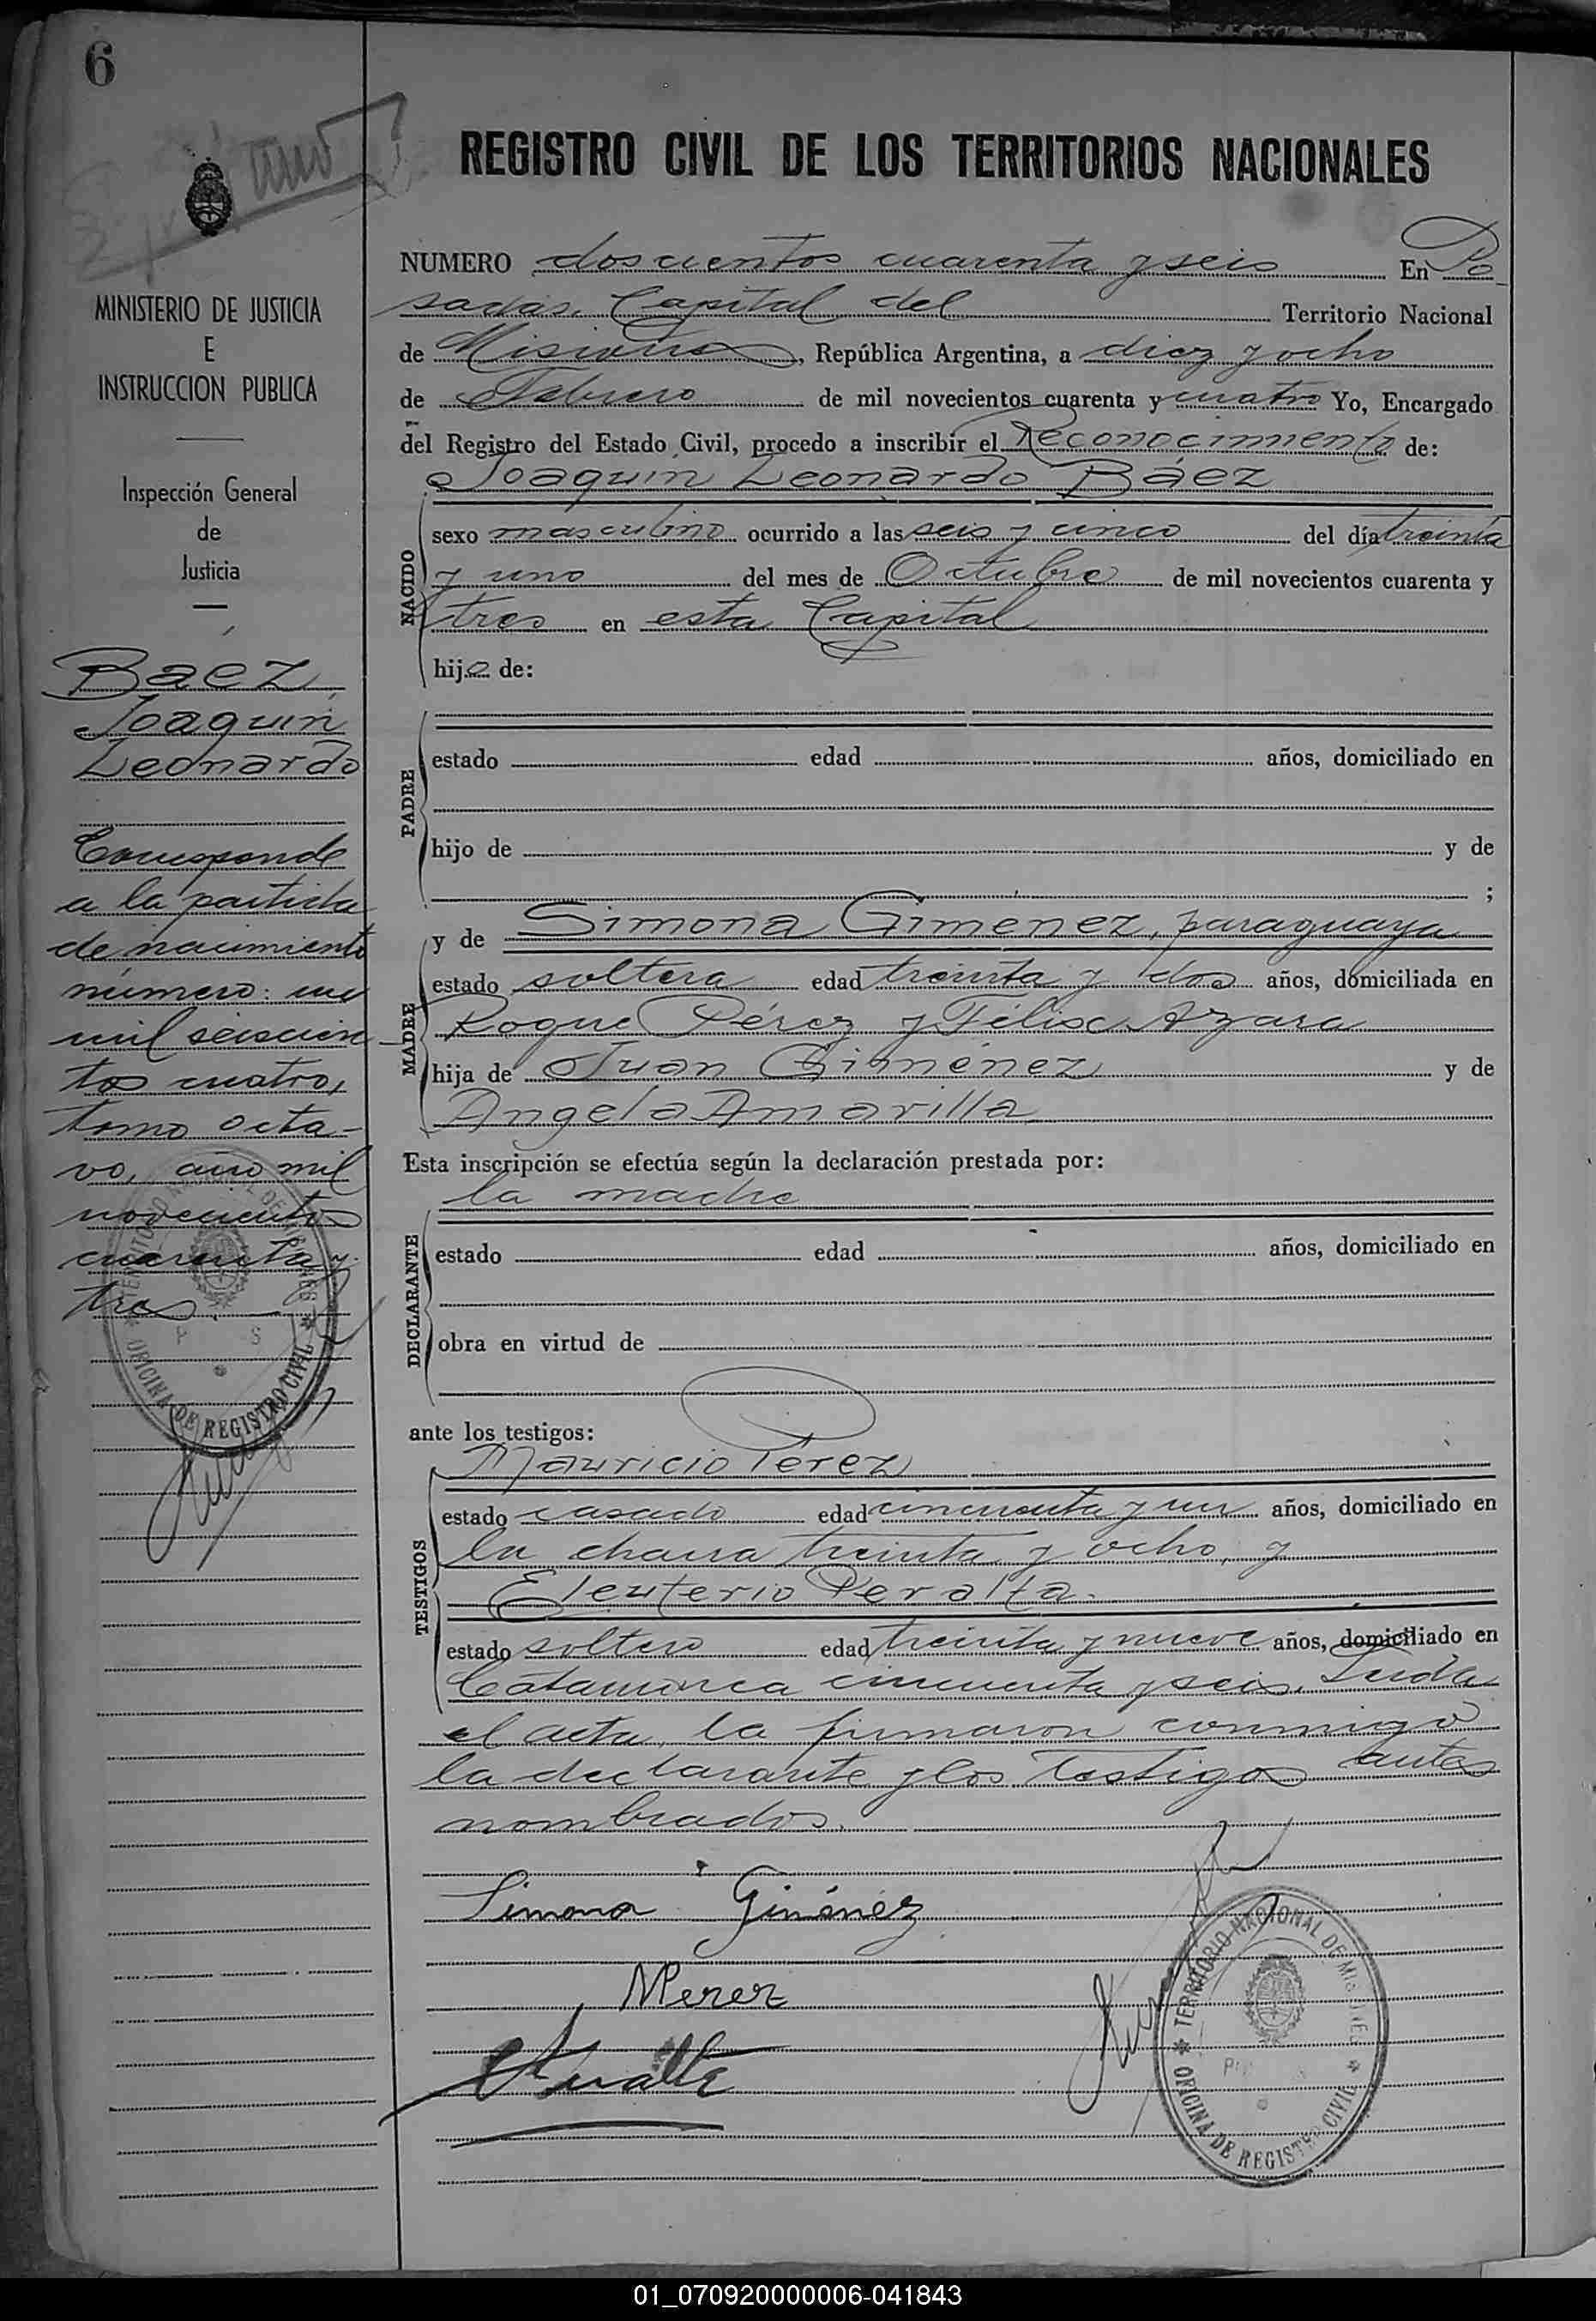 6
MINISTERIO DE JUSTICIA
E
INSTRUCCION PUBLICA
Inspección General
de
Justicia
Báez,
Joaquin
Leonardo
Corresponde
a la partida
de nacimiento
número: un
mil seiscien
tos cuatro,
tomo octa-
vo, año mil
novecientos
cuarenta y
tres
TERRITORIO NACIONAL DE MISIONES
OFICINA DE REGISTRO CIVIL
REGISTRO CIVIL DE LOS TERRITORIOS NACIONALES
NUMERO doscientos cuarenta y seis En Po
sadas, Capital del Territorio Nacional
de Misiones, República Argentina, a diez y ocho
de Febrero de mil novecientos cuarenta y cuatro Yo, Encargado
del Registro del Estado Civil, procedo a inscribir el Reconocimiento de:
Joaquin Leonardo Báez
NACIDO
sexo masculino ocurrido a las seis y cinco del día treinta
y uno del mes de Octubre de mil novecientos cuarenta y
tres en esta Capital
hijo de:
PADRE
estado edad años, domiciliado en
hijo de y de
;
y de Simona Giménez, paraguaya
MADRE
estado soltera edad treinta y dos años, domiciliada en
Roque Pérez y Félix Azara
hija de Juan Giménez y de
Angela Amarilla
Esta inscripción se efectúa según la declaración prestada por:
la madre
DECLARANTE
estado edad años, domiciliado en
obra en virtud de
ante los testigos:
Mauricio Pérez
TESTIGOS
estado casado edad cincuenta y un años, domiciliado en
la chacra treinta y ocho, y
Eleuterio Peralta.
estado soltero edad treinta y nueve años, domiciliado en
Catamarca cincuenta y seis. Leída
el acta, la firmaron conmigo
la declarante y los testigos antes
nombrados.
Simona Giménez
MPerez
TERRITORIO NACIONAL DE MISIONES
OFICINA DE REGISTRO CIVIL
01_070920000006-041843